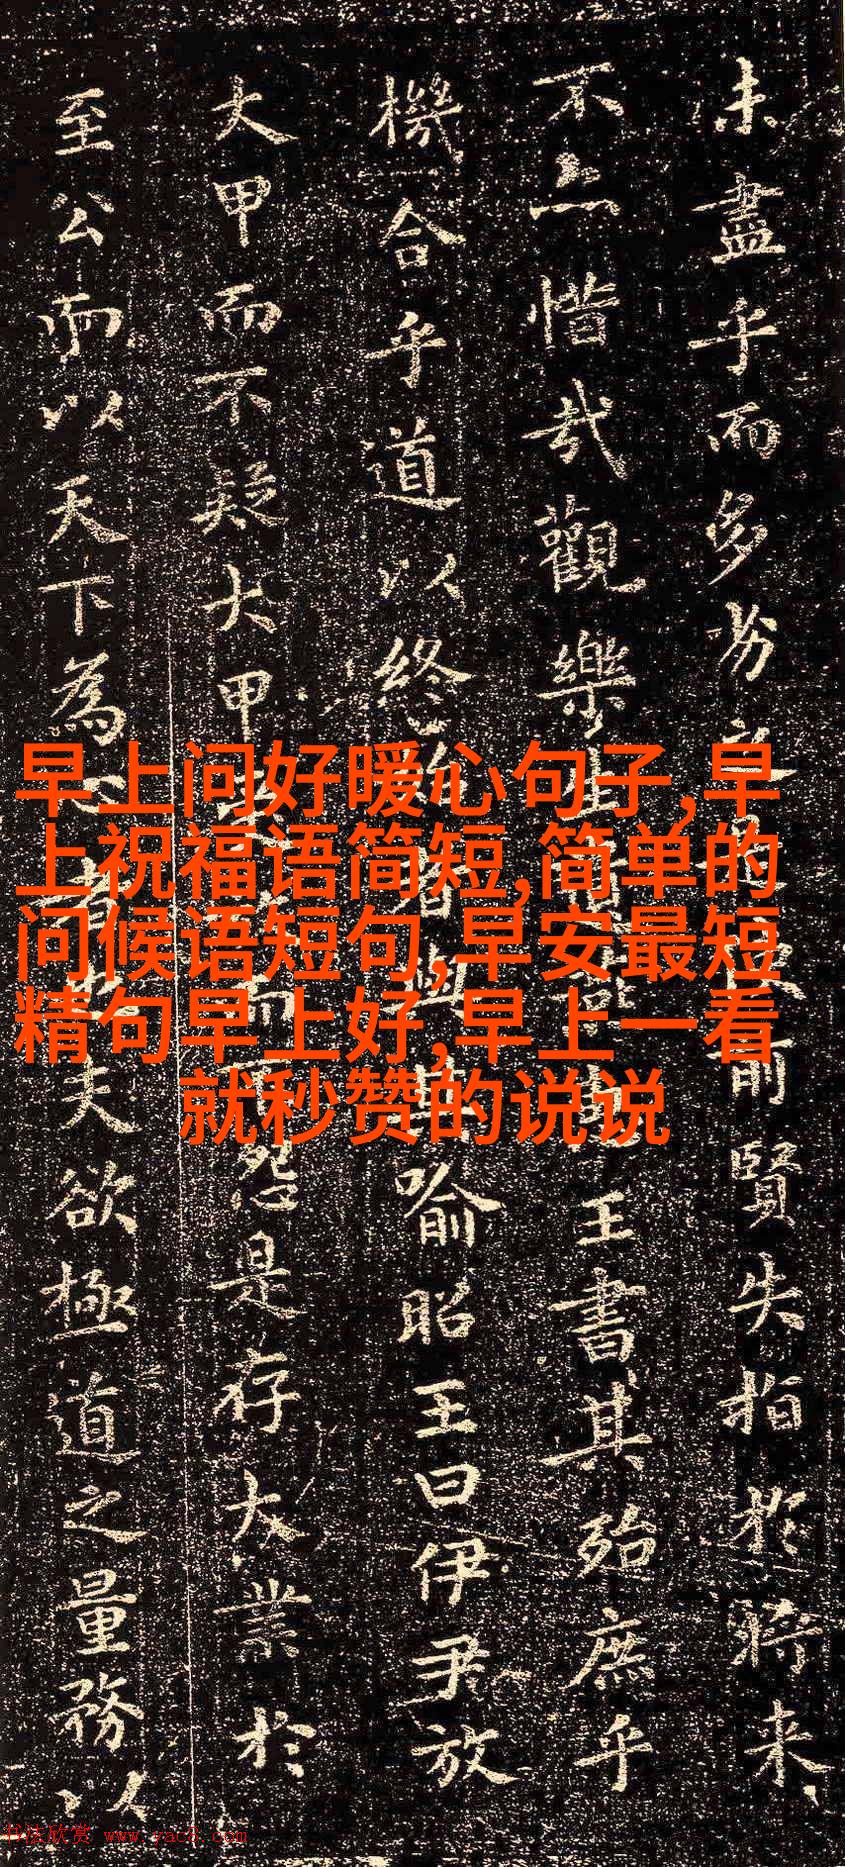 早上问好暖心句子,早
上祝福语简短,简单的
问候语短句,早安最短
精句早上好,早上一看
就秒赞的说说
未盡乎而多劣之前賢失指於將来
不亦惜哉觀樂生王書其殆庶乎
機合乎道以終始者與其喻昭王曰伊尹放
大甲而不疑大甲而不怨是存大業於
至公而以天下為心者也夫欲極道之量務以
书法欣赏 www.yac8.com